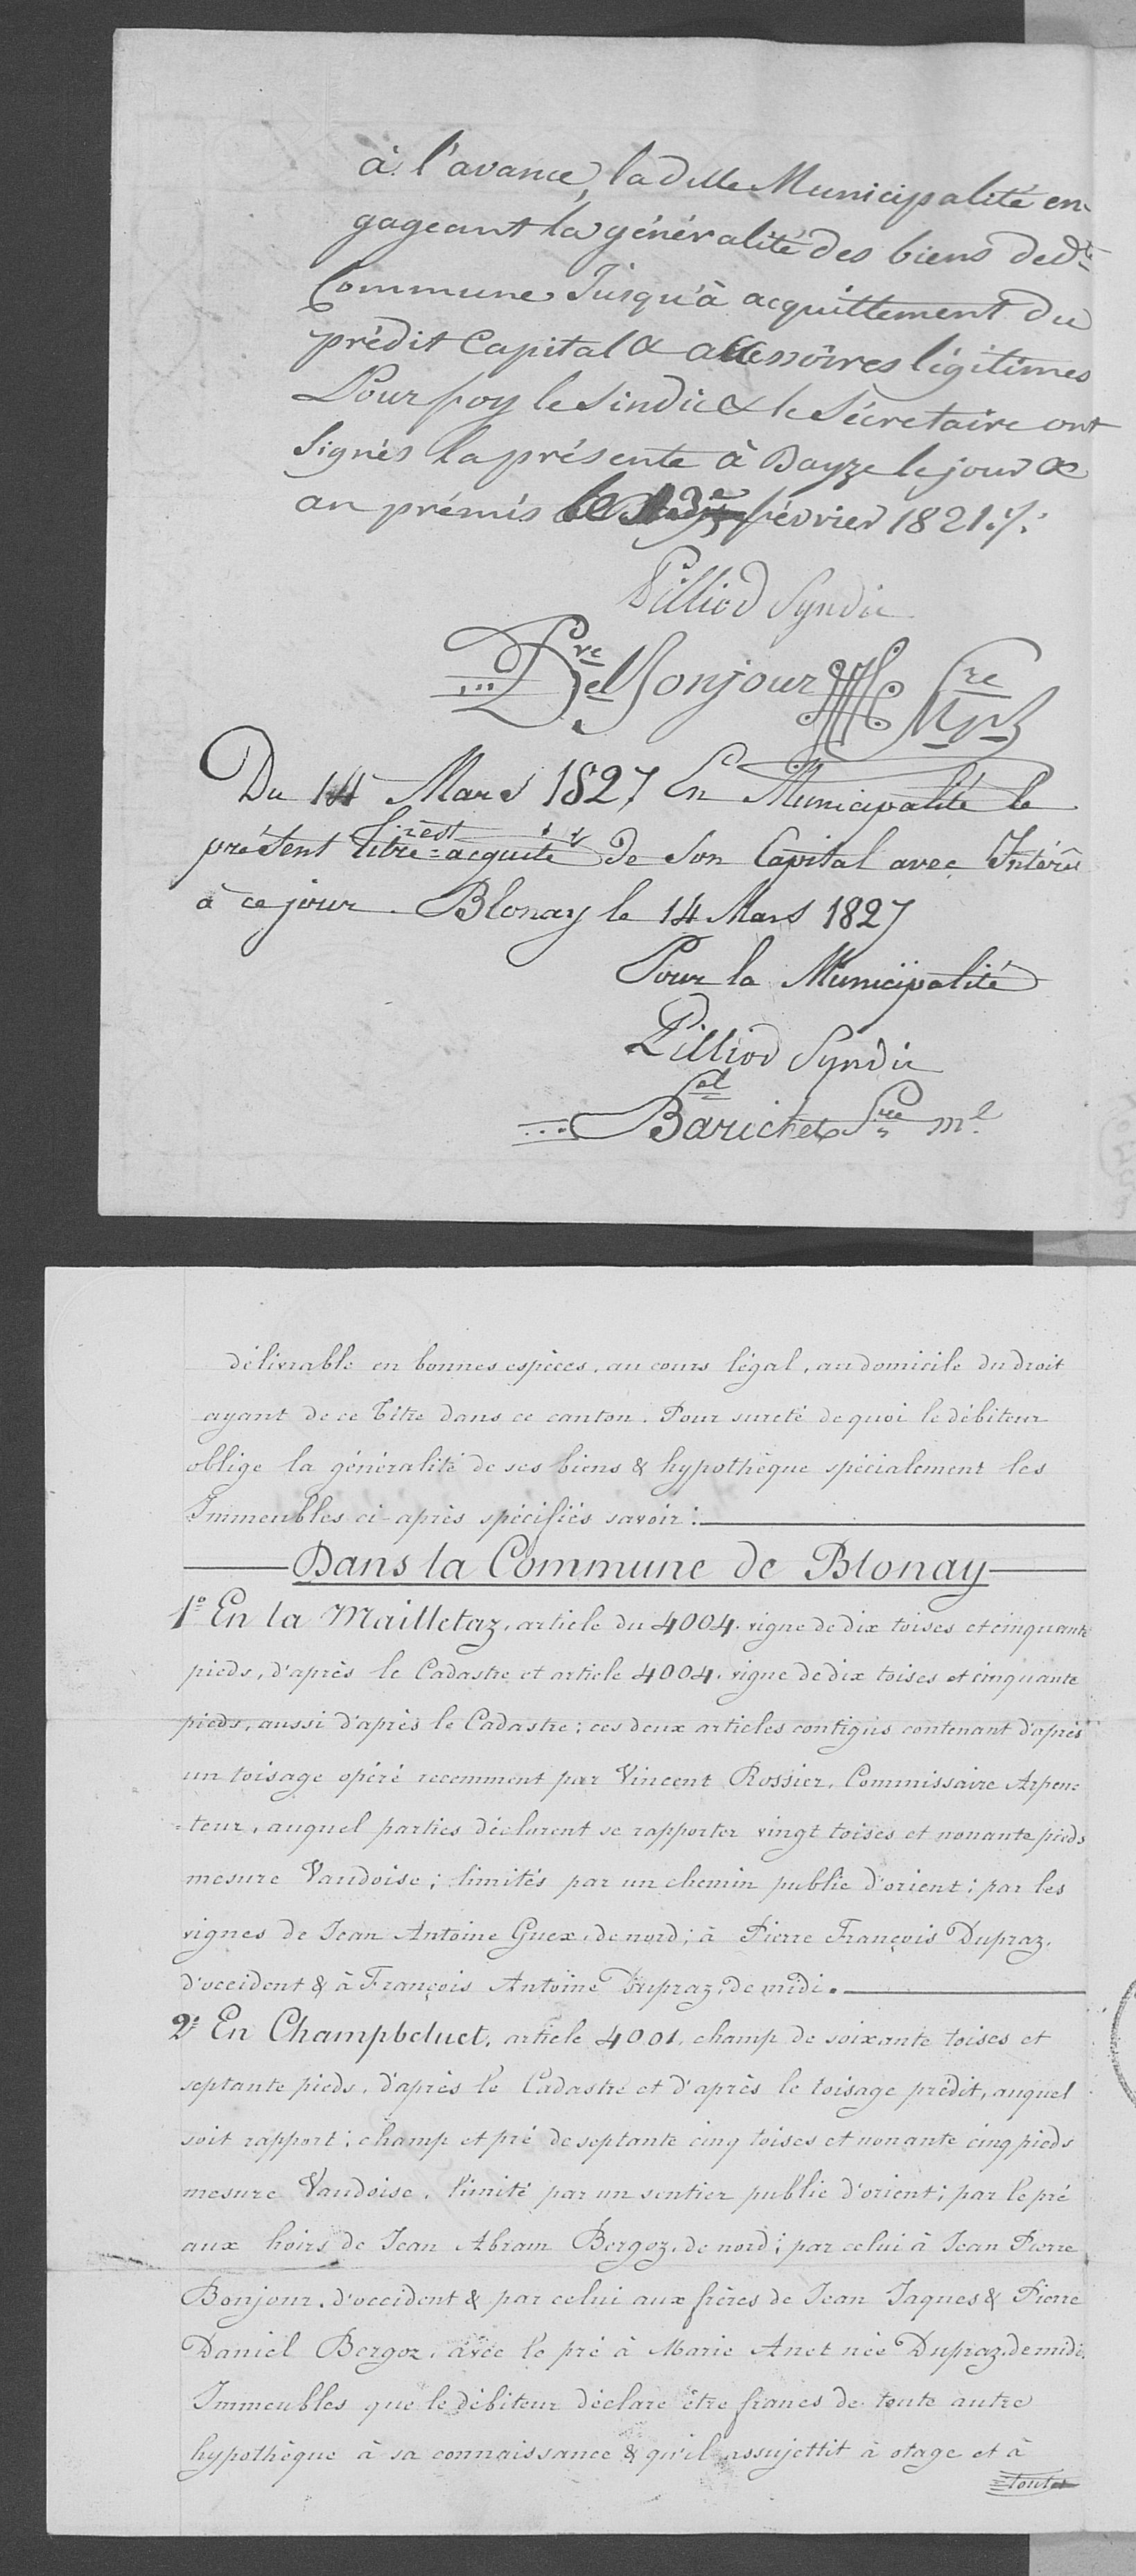 à l'avance, la dite Municipalité en-
gageant la généralité des biens de dte
Commune Jusqu'à acquittement du
prédit Capital & accessoires légitimes
Pour foy le Sindic & le Sécretaire ont
Signés la présente à Bayze le jour &
an prémis février 1821 ./.
Pilliod Syndic
Pre Del Bonjour Sre Mpl
Du 14 Mars 1827 En Municipalité le
présent titre est acquité de Son Capital avec Intérêt
à ce jour. Blonay le 14 Mars 1827
Pour la Municipalité
Pilliod Syndic
Barichet Sre ml
délivrable en bonnes espèces, au cours légal, au domicile du droit
ayant de ce Titre dans ce canton. Pour sureté de quoi le débiteur
oblige la généralité de ses biens & hypothèque spécialement les
Immeubles ci-après spécifiés savoir :
Dans la Commune de Blonay
1o En la Mailletaz, article du 4004. vigne de dix toises et cinquante
pieds, d'après le Cadastre et article 4004. vigne de dix toises et cinquante
pieds, aussi d'après le Cadastre ; ces deux articles contigus contenant d'après
un toisage opéré recemment par Vincent Rossier, Commissaire Arpen=
=teur, auquel parties déclarent se rapporter vingt toises et nonante pieds
mesure Vaudoise ; limités par un chemin public d'orient ; par les
vignes de Jean Antoine Guex, de nord ; à Pierre François Dupraz,
d'occident & à François Antoine Dupraz, de midi.
2o En Champbeluet, article 4001, champ de soixante toises et
septante pieds, d'après le Cadastre et d'après le toisage prédit, auquel
soit rapport ; champ et pré de septante cinq toises et nonante cinq pieds
mesure Vaudoise, limité par un sentier public d'orient ; par le pré
aux hoirs de Jean Abram Bergoz, de nord ; par celui à Jean Pierre
Bonjour, d'occident & par celui aux frères de Jean Jaques & Pierre
Daniel Bergoz, avec le pré à Marie Anet née Dupraz, de midi.
Immeubles que le débiteur déclare être francs de toute autre
hypothèque à sa connaissance & qu'il assujettit à otage et à
toutes